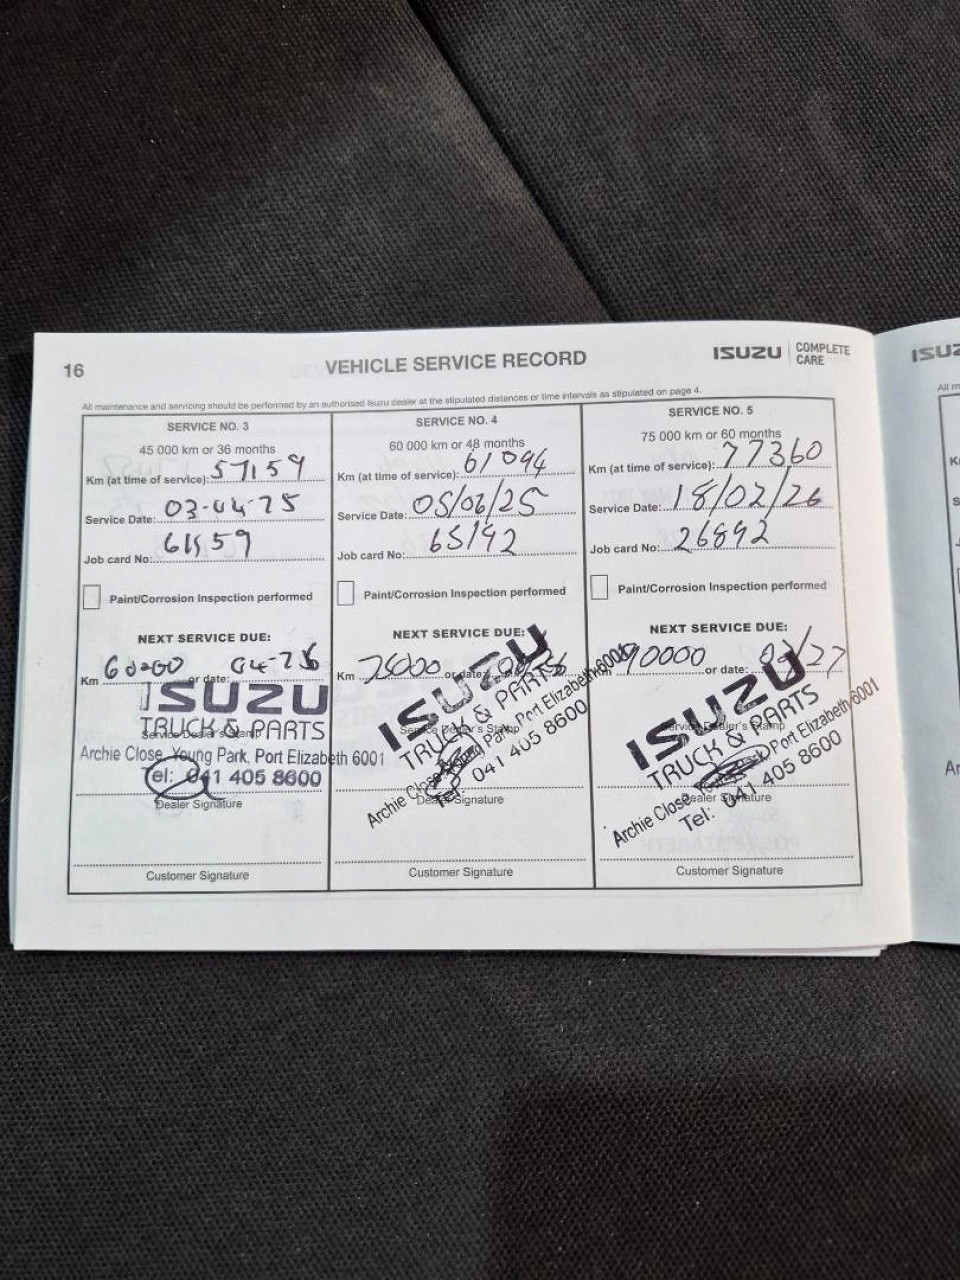 16
VEHICLE SERVICE RECORD
ISUZU COMPLETE CARE
All maintenance and servicing should be performed by an authorised Isuzu dealer at the stipulated distances or time intervals as stipulated on page 4.
SERVICE NO. 3
45 000 km or 36 months
Km (at time of service): 57159
Service Date: 03-04-25
Job card No: 61159
Paint/Corrosion Inspection performed
NEXT SERVICE DUE:
Km 60000 or date: 04-26
ISUZU
TRUCK & PARTS
Service Dealer's Stamp
Archie Close, Young Park, Port Elizabeth 6001
Tel: 041 405 8600
Dealer Signature
Customer Signature
SERVICE NO. 4
60 000 km or 48 months
Km (at time of service): 61094
Service Date: 05/06/25
Job card No: 65142
Paint/Corrosion Inspection performed
NEXT SERVICE DUE:
Km 75000 or date:
ISUZU
TRUCK & PARTS
Service Dealer's Stamp
Archie Close, Young Park, Port Elizabeth 6001
Tel: 041 405 8600
Dealer Signature
Customer Signature
SERVICE NO. 5
75 000 km or 60 months
Km (at time of service): 77360
Service Date: 18/02/26
Job card No: 26892
Paint/Corrosion Inspection performed
NEXT SERVICE DUE:
90000 or date: 02/27
ISUZU
TRUCK & PARTS
Service Dealer's Stamp
Archie Close Park, Port Elizabeth 6001
Tel: 041 405 8600
Dealer Signature
Customer Signature